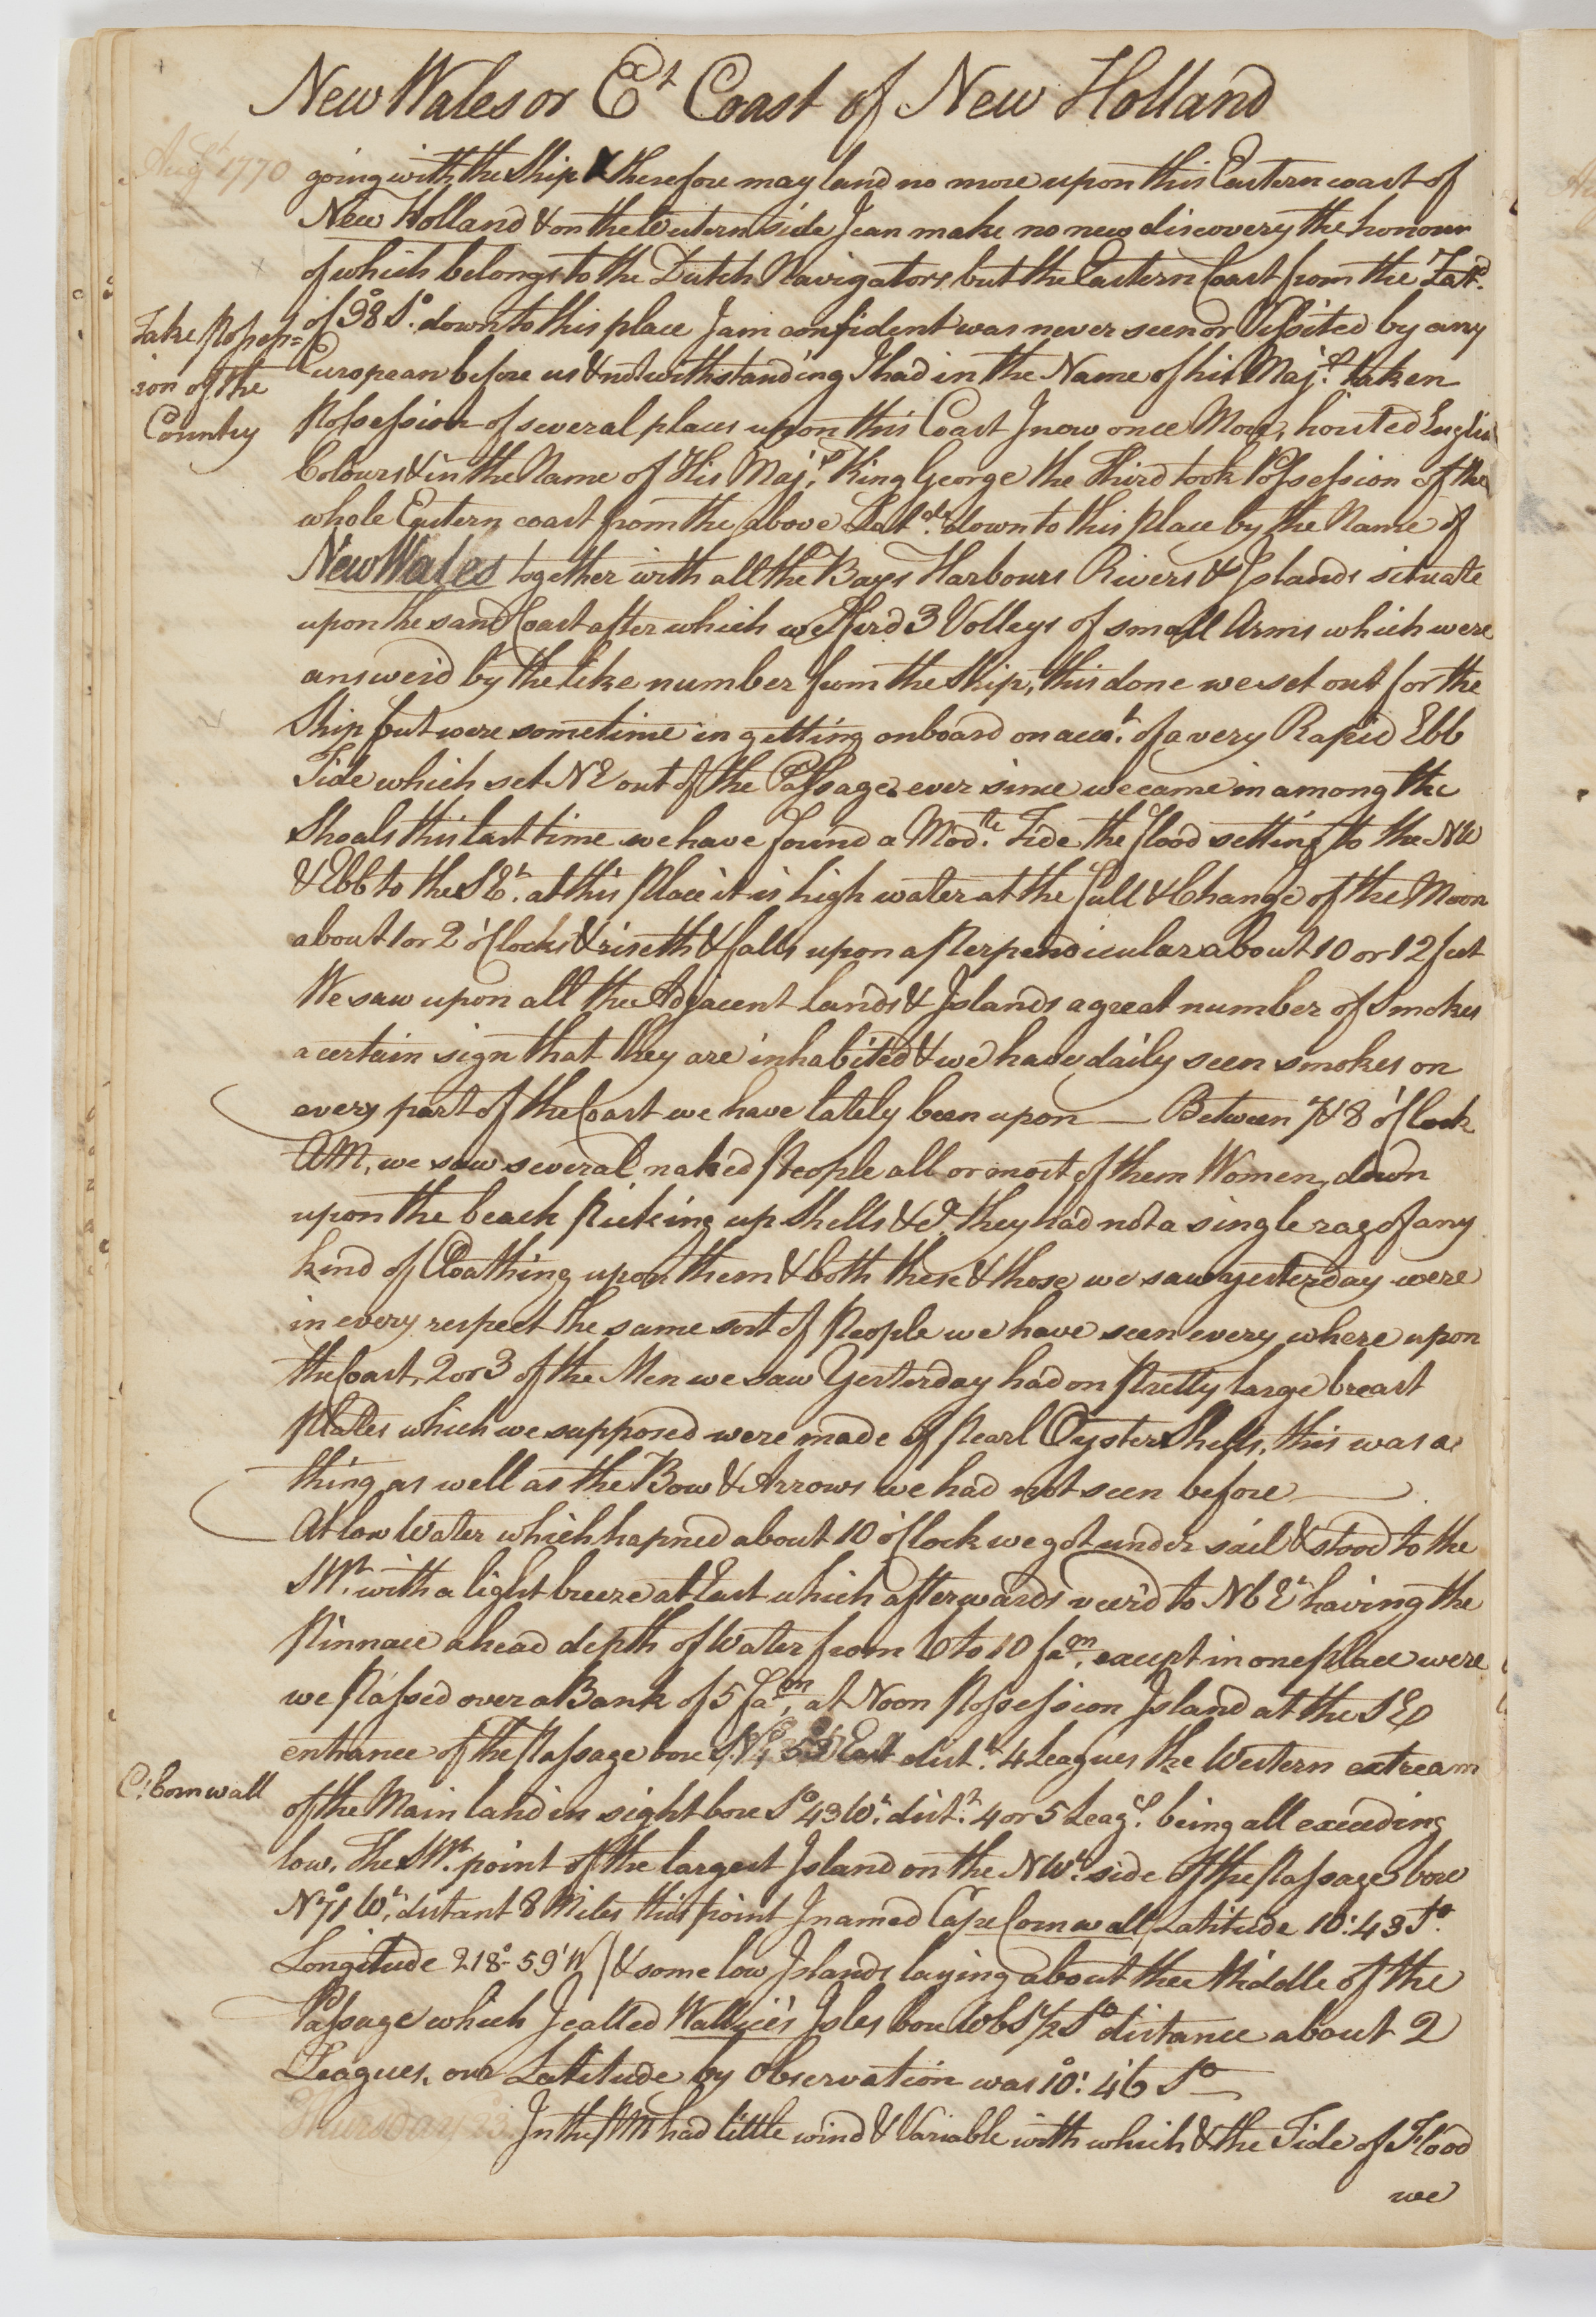 New Wales or Et Coast of New Holland
Augst 1770
going with the Ship & therefore may land no more upon this Eastern coast of
New Holland & on the Western side I can make no new discovery the honour
of which belongs to the Dutch Navigators but the Eastern Coast from the Latd.
of 38° So. down to this place I am confident was never seen or Visited by any
Take Possess=
ion of the
Country
European before us & notwithstanding I had in the Name of his Majty. taken
Possession of several places upon this Coast I now once More, hoisted English
Colours & in the Name of His Majty. King George the Third took Possession of the
whole Eastern coast from the above Latde. down to this place by the Name of
New Wales together with all the Bays Harbours Rivers & Islands situate
upon the sand Coast after which we fird 3 Volleys of small Arms which were
answerd by the like number from the Ship, this done we set out for the
Ship but were sometime in getting onboard on acct. of a very Rapid Ebb
Tide which set NE out of the Passage ever since we came in among the
Shoals this last time we have found a Modte. Tide the flood setting to the NW
& Ebb to the SEt. at this Place it is high water at the full & Change of the Moon
about 1 or 2 o'Clock & riseth & falls upon a Perpendicular about 10 or 12 feet
We saw upon all the Adjacent lands & Islands a great number of Smokes
a certain sign that they are inhabited & we have daily seen smokes on
every part of the Coast we have lately been upon — Between 7 & 8 o'Clock
AM, we saw several naked People all or most of them Women, down
upon the beach Picking up Shells &c. they had not a single rag of any
kind of Cloathing upon them & both these & those we saw yesterday were
in every respect the same sort of People we have seen every where upon
the Coast, 2 or 3 of the Men we saw Yesterday had on Pretty large breast
Plates which we supposed were made of Pearl Oyster Shells, this was a
thing as well as the Bow & Arrows we had not seen before —
At low Water which hapned about 10 o'Clock we got under sail & stood to the
SWt. with a light breeze at East which afterwards veer'd to NbEt having the
Pinnace ahead depth of Water from 6 to 10 fam, except in one place were
we Passed over a Bank of 5 fam, at Noon Possession Island at the SE
entrance of the Passage bore East distt. 4 Leagues the Western extream
C. Cornwall
of the Main land in sight bore So 43 Wt. distt. 4 or 5 Leags. being all exceeding
low. The SWt. point of the largest Island on the NWt. side of the Passage bore
N 71° Wt. distant 8 Miles this point I named Cape Cornwall (Latitude 10°: 43 So
Longitude 218°- 59' W) & some low Islands laying about the Middle of the
Passage which I called Wallice's Isles bore WbS 1/2 So distance about 2
Leagues, our Latitude by Observation was 10°: 46' So —
Thursday 23. In the PM had little wind & Variable with which & the Tide of Flood
we